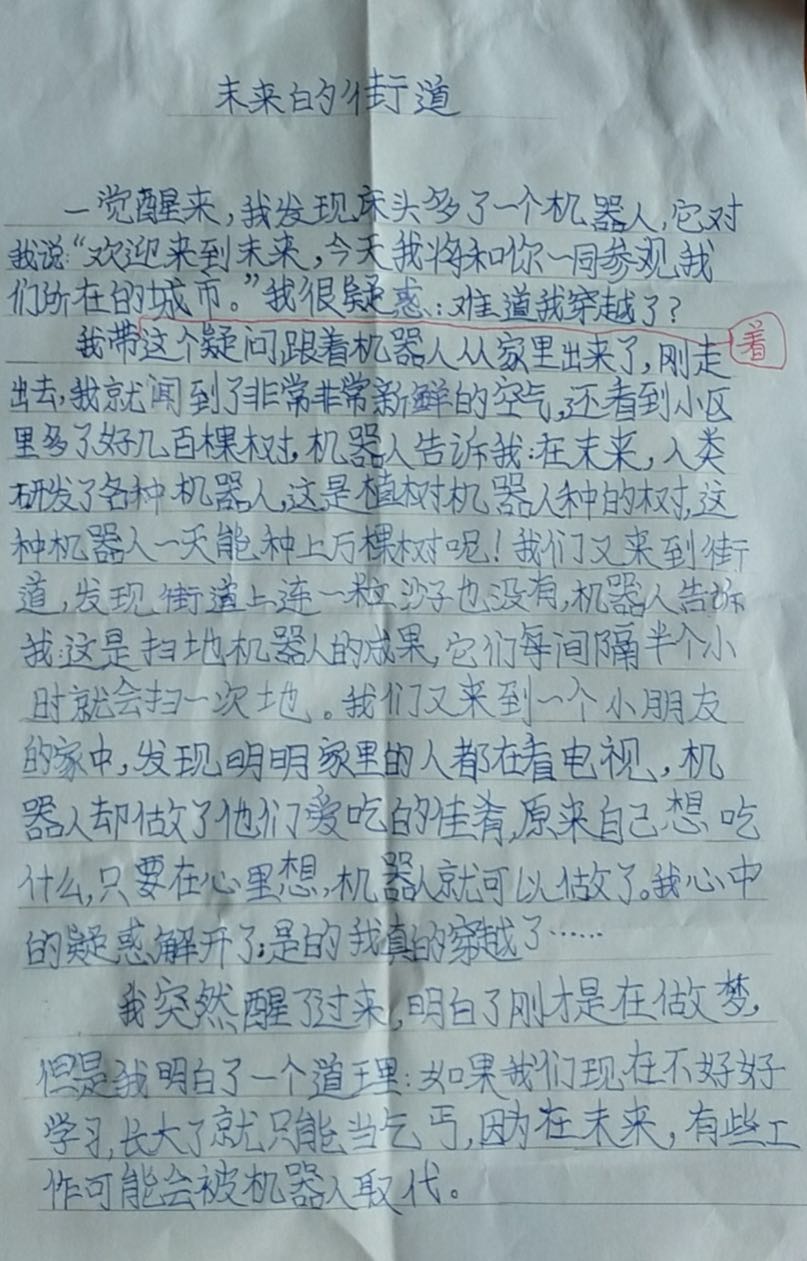 未来的街道
一觉醒来,我发现床头多了一个机器人,它对
我说:“欢迎来到未来,今天我将和你一同参观我
们所在的城市。”我很疑惑:难道我穿越了?
我带这个疑问跟着机器人从家里出来了,刚走
着
出去,我就闻到了非常非常新鲜的空气,还看到小区
里多了好几百棵树,机器人告诉我:在未来,人类
研发了各种机器人,这是植树机器人种的树,这
种机器人一天能种上万棵树呢!我们又来到街
道,发现街道上连一粒沙子也没有,机器人告诉
我:这是扫地机器人的成果,它们每间隔半个小
时就会扫一次地。我们又来到一个小朋友
的家中,发现明明家里的人都在看电视,机
器人却做了他们爱吃的佳肴,原来自己想吃
什么,只要在心里想,机器人就可以做了。我心中
的疑惑解开了,是的我真的穿越了……
我突然醒了过来,明白了刚才是在做梦,
但是我明白了一个道理:如果我们现在不好好
学习,长大了就只能当乞丐,因为在未来,有些工
作可能会被机器人取代。